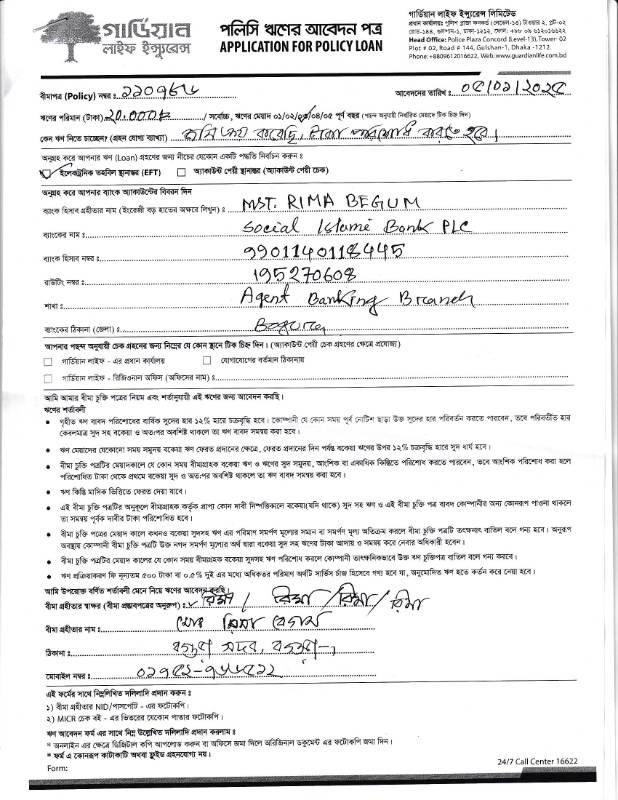 গার্ডিয়ান
লাইফ ইন্স্যুরেন্স
পলিসি ঋণের আবেদন পত্র
APPLICATION FOR POLICY LOAN
গার্ডিয়ান লাইফ ইন্স্যুরেন্স লিমিটেড
Head Office: Police Plaza Concord (Level-13), Tower- 02
Plot # 02, Road # 144, Gulshan-1, Dhaka -1212.
Phone:+8809612016622, Web: www.guardianlife.com.bd
বীমাপত্র (Policy) নম্বর ঃ
আবেদনের তারিখ ঃ
ঋণের পরিমান (টাকা) 20,000/= / সর্বোচ্চ, ঋণের মেয়াদ ০১/০২/০৩/০৪/০৫ পূর্ণ বছর (পছন্দ অনুযায়ী নির্ধারিত মেয়াদে টিক চিহ্ন দিন)
কেন ঋণ নিতে চাচ্ছেন? (গ্রহন যোগ্য ব্যাখ্যা)
অনুগ্রহ করে আপনার ঋণ (Loan) গ্রহণের জন্য নীচের যেকোন একটি পদ্ধতি নির্বাচন করুন ঃ
ইলেকট্রনিক তহবিল স্থানান্তর (EFT) অ্যাকাউন্ট পেয়ী স্থানান্তর (অ্যাকাউন্ট পেয়ী চেক)
অনুগ্রহ করে আপনার ব্যাংক অ্যাকাউন্টের বিবরন দিন
ব্যাংক হিসাব গ্রহীতার নাম (ইংরেজী বড় হাতের অক্ষরে লিখুন) ঃ MST. RIMA BEGUM
ব্যাংকের নাম ঃ Social Islami Bank PLC
ব্যাংক হিসাব নম্বর ঃ 9901140118445
রাউটিং নম্বর ঃ 195270608
শাখা ঃ Agent Banking Branch
ব্যাংকের ঠিকানা (জেলা) ঃ Bogura
আপনার পছন্দ অনুযায়ী চেক গ্রহনের জন্য নিম্নের যে কোন স্থানে টিক চিহ্ন দিন। (অ্যাকাউন্ট পেয়ী চেক গ্রহণের ক্ষেত্রে প্রযোজ্য)
গার্ডিয়ান লাইফ - এর প্রধান কার্যালয় যোগাযোগের বর্তমান ঠিকানায়
গার্ডিয়ান লাইফ - রিজিওনাল অফিস (অফিসের নাম) ঃ
আমি আমার বীমা চুক্তি পত্রের নিয়ম এবং শর্তানুযায়ী এই ঋণের জন্য আবেদন করছি।
ঋণের শর্তাবলী
• গৃহীত ঋণ বাবদ পরিশোধের বার্ষিক সুদের হার ১২% হারে চক্রবৃদ্ধি হবে। কোম্পানী যে কোন সময় পূর্ব নোটিশ ছাড়া উক্ত সুদের হার পরিবর্তন করতে পারবেন, তবে পরিবর্তীত হার
কেবলমাত্র সুদ সহ বকেয়া ও অতঃপর অবশিষ্ট থাকলে তা ঋণ বাবদ সমন্বয় করা হবে।
• ঋণ মেয়াদের যেকোনো সময় সমুদয় বকেয়া ঋণ ফেরত প্রদানের ক্ষেত্রে, ফেরত প্রদানের দিন পর্যন্ত বকেয়া ঋণের উপর ১২% চক্রবৃদ্ধি হারে সুদ ধার্য হবে।
• বীমা চুক্তি পত্রটির মেয়াদকালে যে কোন সময় বীমাগ্রাহক বকেয়া ঋণ ও ঋণের সুদ সমুদয়, আংশিক বা একাধিক কিস্তিতে পরিশোধ করতে পারবেন, তবে আংশিক পরিশোধ করা হলে
পরিশোধিত টাকা থেকে প্রথমে বকেয়া সুদ ও অতঃপর অবশিষ্ট থাকলে তা ঋণ বাবদ সমন্বয় করা হবে।
• ঋণ কিস্তি মাসিক ভিত্তিতে ফেরত দেয়া যাবে।
• এই বীমা চুক্তি পত্রটির অনুকূলে বীমাগ্রাহক কর্তৃক প্রাপ্য কোন দাবী নিষ্পত্তিকালে বকেয়া(যদি থাকে) সুদ সহ ঋণ ও এই বীমা চুক্তি পত্র বাবদ কোম্পানীর অন্য কোনরূপ পাওনা থাকলে
তা সমন্বয় পূর্বক দাবীর টাকা পরিশোধিত হবে।
• বীমা চুক্তি পত্রের মেয়াদ কালে কখনও বকেয়া সুদসহ ঋণ এর পরিমাণ সমর্পণ মূল্যের সমান বা সমর্পণ মূল্য অতিক্রম করলে বীমা চুক্তি পত্রটি তৎক্ষণাৎ বাতিল বলে গন্য হবে। অনুরূপ
অবস্থায় কোম্পানী বীমা চুক্তি পত্রটি উক্ত নগদ সমর্পণ মূল্যের অর্থ দ্বারা বকেয়া সুদ সহ ঋণের টাকা আদায় ও সমন্বয় করে নেবার অধিকারী হবেন।
• বীমা চুক্তি পত্রটির মেয়াদ কালের যে কোন সময় বীমাগ্রাহক বকেয়া সুদসহ ঋণ পরিশোধ না করলে কোম্পানী তাৎক্ষনিকভাবে উক্ত ঋণ চুক্তিপত্র বাতিল বলে গন্য করবে।
• ঋণ প্রক্রিয়াকরণ ফি নূন্যতম ৫০০ টাকা বা ০.৫% দুই এর মধ্যে অধিকতর পরিমাণ অর্থটি সার্ভিস চার্জ হিসেবে গণ্য হবে যা, অনুমোদিত ঋণ হতে কর্তন করে নেয়া হবে।
আমি উপরোক্ত বর্ণিত শর্তাবলী মেনে নিয়ে ঋণের আবেদন করছি।
বীমা গ্রহীতার স্বাক্ষর (বীমা প্রস্তাবপত্রের অনুরূপ) ঃ রিমা / রিমা / রিমা / রিমা
বীমা গ্রহীতার নাম ঃ মোছাঃ রিমা বেগম
ঠিকানা ঃ বগুড়া সদর, বগুড়া
মোবাইল নম্বর ঃ
এই ফর্মের সাথে নিম্নলিখিত দলিলাদি প্রদান করুন ঃ
১) বীমা গ্রহীতার NID/পাসপোর্ট - এর ফটোকপি।
২) MICR চেক বই - এর ভিতরের যেকোন পাতার ফটোকপি।
ঋণ আবেদন ফর্ম এর সাথে নিম্ন উল্লেখিত দলিলাদি প্রদান করলাম ঃ
* অনলাইন এর ক্ষেত্রে ডিজিটাল কপি আপলোড করুন বা অফিসে জমা দিলে অরিজিনাল ডকুমেন্ট এর ফটোকপি জমা দিন।
* ফর্ম এ কোনরূপ কাটাকাটি অথবা ফ্লুইড গ্রহনযোগ্য নয়।
Form:
24/7 Call Center 16622